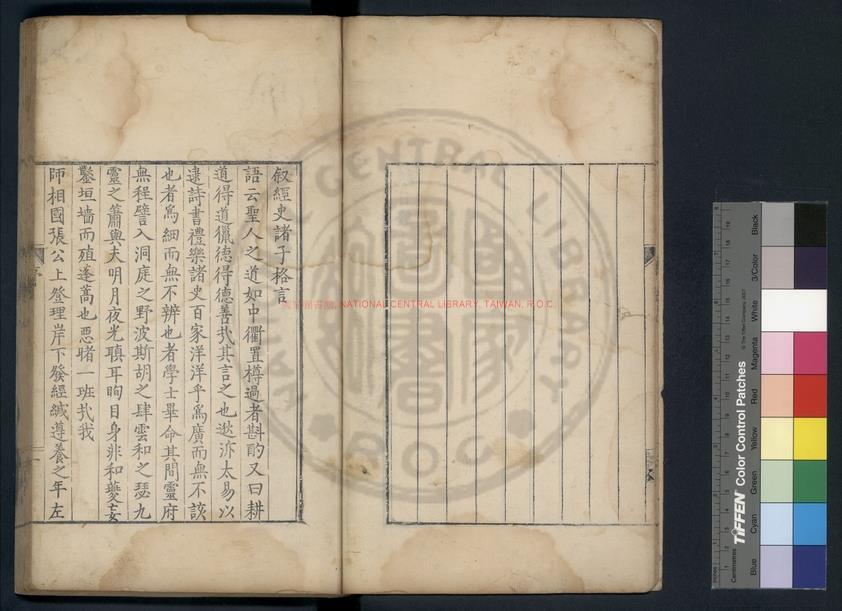 叙經史諸子格言
語云聖人之道如中衢置樽過者斟酌又曰耕
道得道獵德得德善哉其言之也遡泝太易以
逮詩書禮樂諸史百家洋洋乎為廣而無不該
也者為細而無不辨也者學士畢命其間靈府
無程譬入洞庭之野波斯胡之肆雲和之瑟九
靈之簫與夫明月夜光瞋耳眴目身非和夔妄
鑿垣墙而殖蓬蒿也惡睹一班哉我
師相國張公上登理岸下發經緘遵養之年左
國家圖書館, NATIONAL CENTRAL LIBRARY, TAIWAN, R.O.C
NATIONAL CENTRAL LIBRARY
ROC
TIFFEN Color Control Patches
© The Tiffen Company, 2007
Centimetres
Blue
Cyan
Green
Yellow
Red
Magenta
White
3/Color
Black